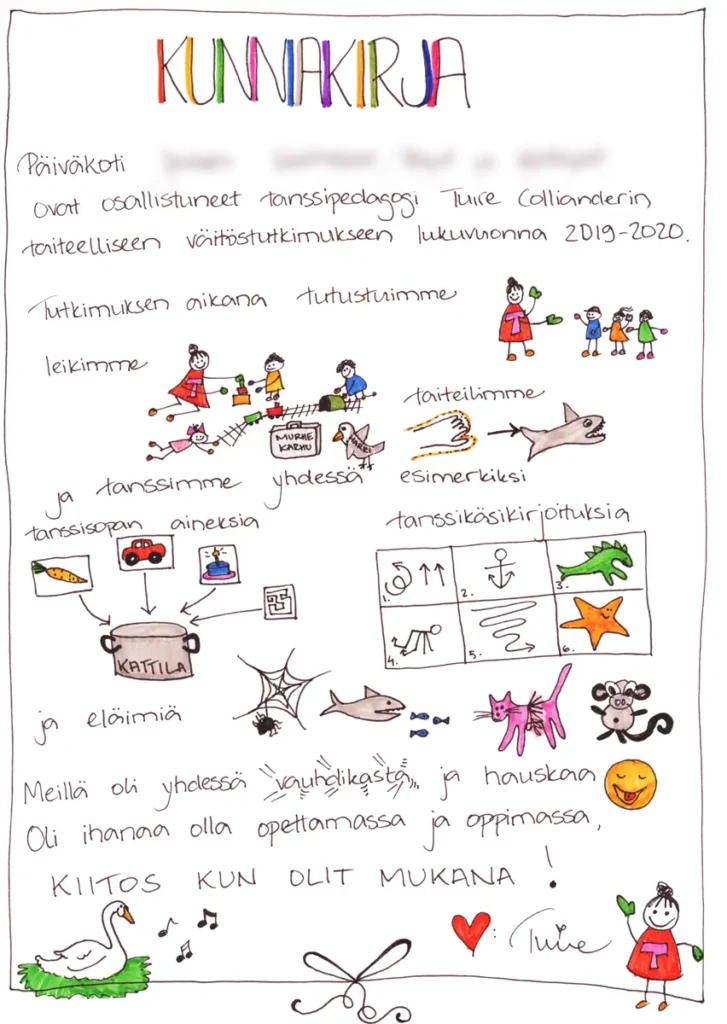 KUNNIAKIRJA
Päiväkoti
ovat osallistuneet tanssipedagogi Tuire Collianderin
taiteelliseen väitöstutkimukseen lukuvuonna 2019-2020.
Tutkimuksen aikana tutustuimme
T
leikimme
T
taiteilimme
MURHE
KARHU
HARRI
ja tanssimme yhdessä esimerkiksi
tanssisopan aineksia
tanssikäsikirjoituksia
1.
2.
3.
4.
5.
6.
KATTILA
ja eläimiä
Meillä oli yhdessä vauhdikasta, ja hauskaa
Oli ihanaa olla opettamassa ja oppimassa,
KIITOS KUN OLIT MUKANA!
: Tuire
T